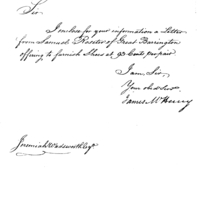 Sir
I enclose for your information a Letter
from Samuel Rosetor of Great Barrington
offering to furnish Shoes at 90 Cents per pair
I am Sir
Your obed Serv
James McHenry
Jeremiah Wadsworth Esqr